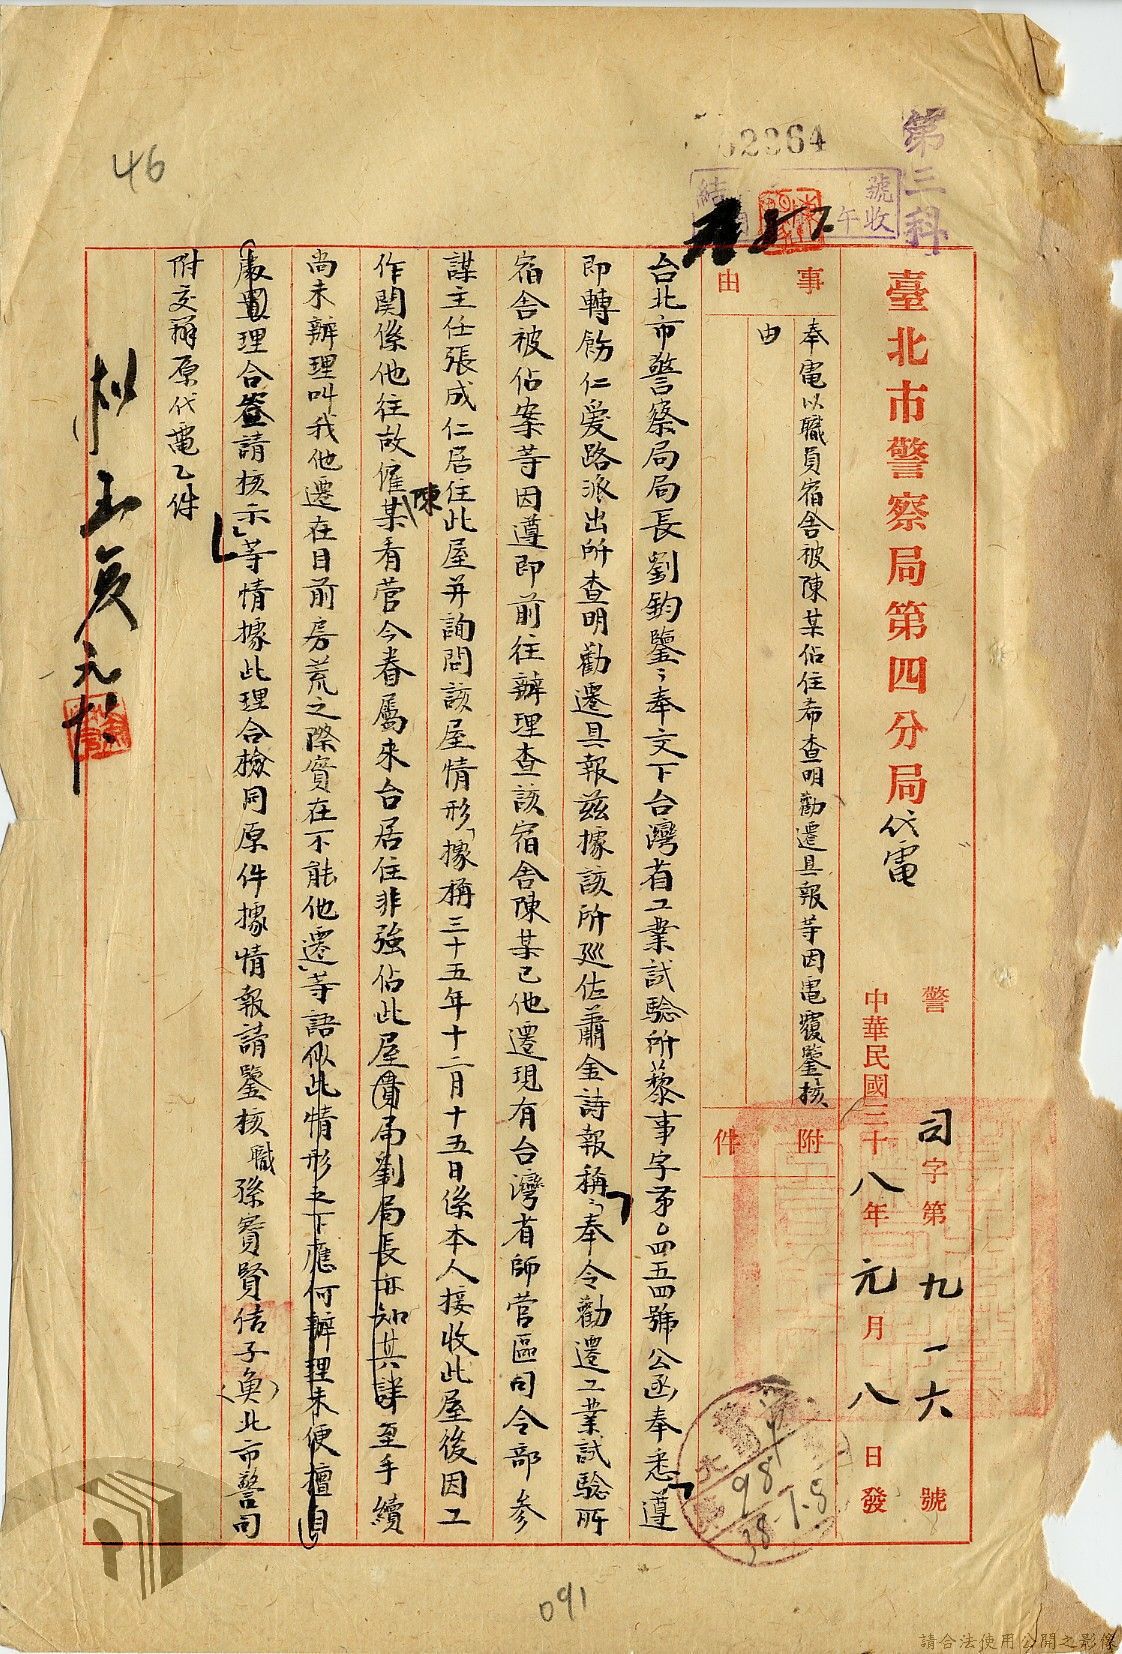 46
52264
第三科
號收
午
結
臺北市警察局第四分局代電
警司字第九一一六號
中華民國三十八年元月八日發
事由
奉電以職員宿舍被陳某佔住希查明勸遷具報等因電覆鑒核
由
附件
台北市警察局局長劉鈞鑒：奉交下台灣省工業試驗所藜事字第0四五四號公函奉悉遵
即轉飭仁愛路派出所查明勸遷具報茲據該所巡佐蕭金詩報稱：「奉令勸遷工業試驗所
宿舍被佔案等因遵即前往辦理查該宿舍陳某已他遷現有台灣省師管區司令部參
謀主任張成仁居住此屋并詢問該屋情形「據稱三十五年十二月十五日係本人接收此屋後因工
作関係他往故僱陳某看管今眷屬來台居住非強佔此屋貴局劉局長亦知其詳至手續
尚未辦理叫我他遷在目前房荒之際實在不能他遷」等語似此情形之下應何辦理未便擅自
處置理合簽請核示」等情據此理合檢同原件據情報請鑒核職孫寶賢佶子奐北市警司
附交辦原代電乙件
98
38.1.8
091
請合法使用公開之影像